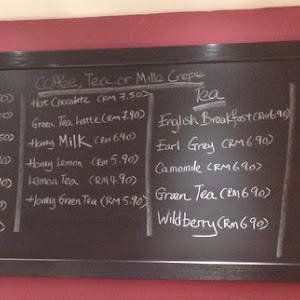 Coffee, Tea or Mille Crepe
Hot Chocolate (RM 7.50)
Green Tea Latte (RM 7.90)
Honey Milk (RM 6.90)
Honey Lemon (RM 5.90)
Lemon Tea (RM 4.90)
Honey Green Tea (RM 5.90)
Tea
English Breakfast (RM 6.90)
Earl Grey (RM 6.90)
Camomile (RM 6.90)
Green Tea (RM 6.90)
Wildberry (RM 6.90)